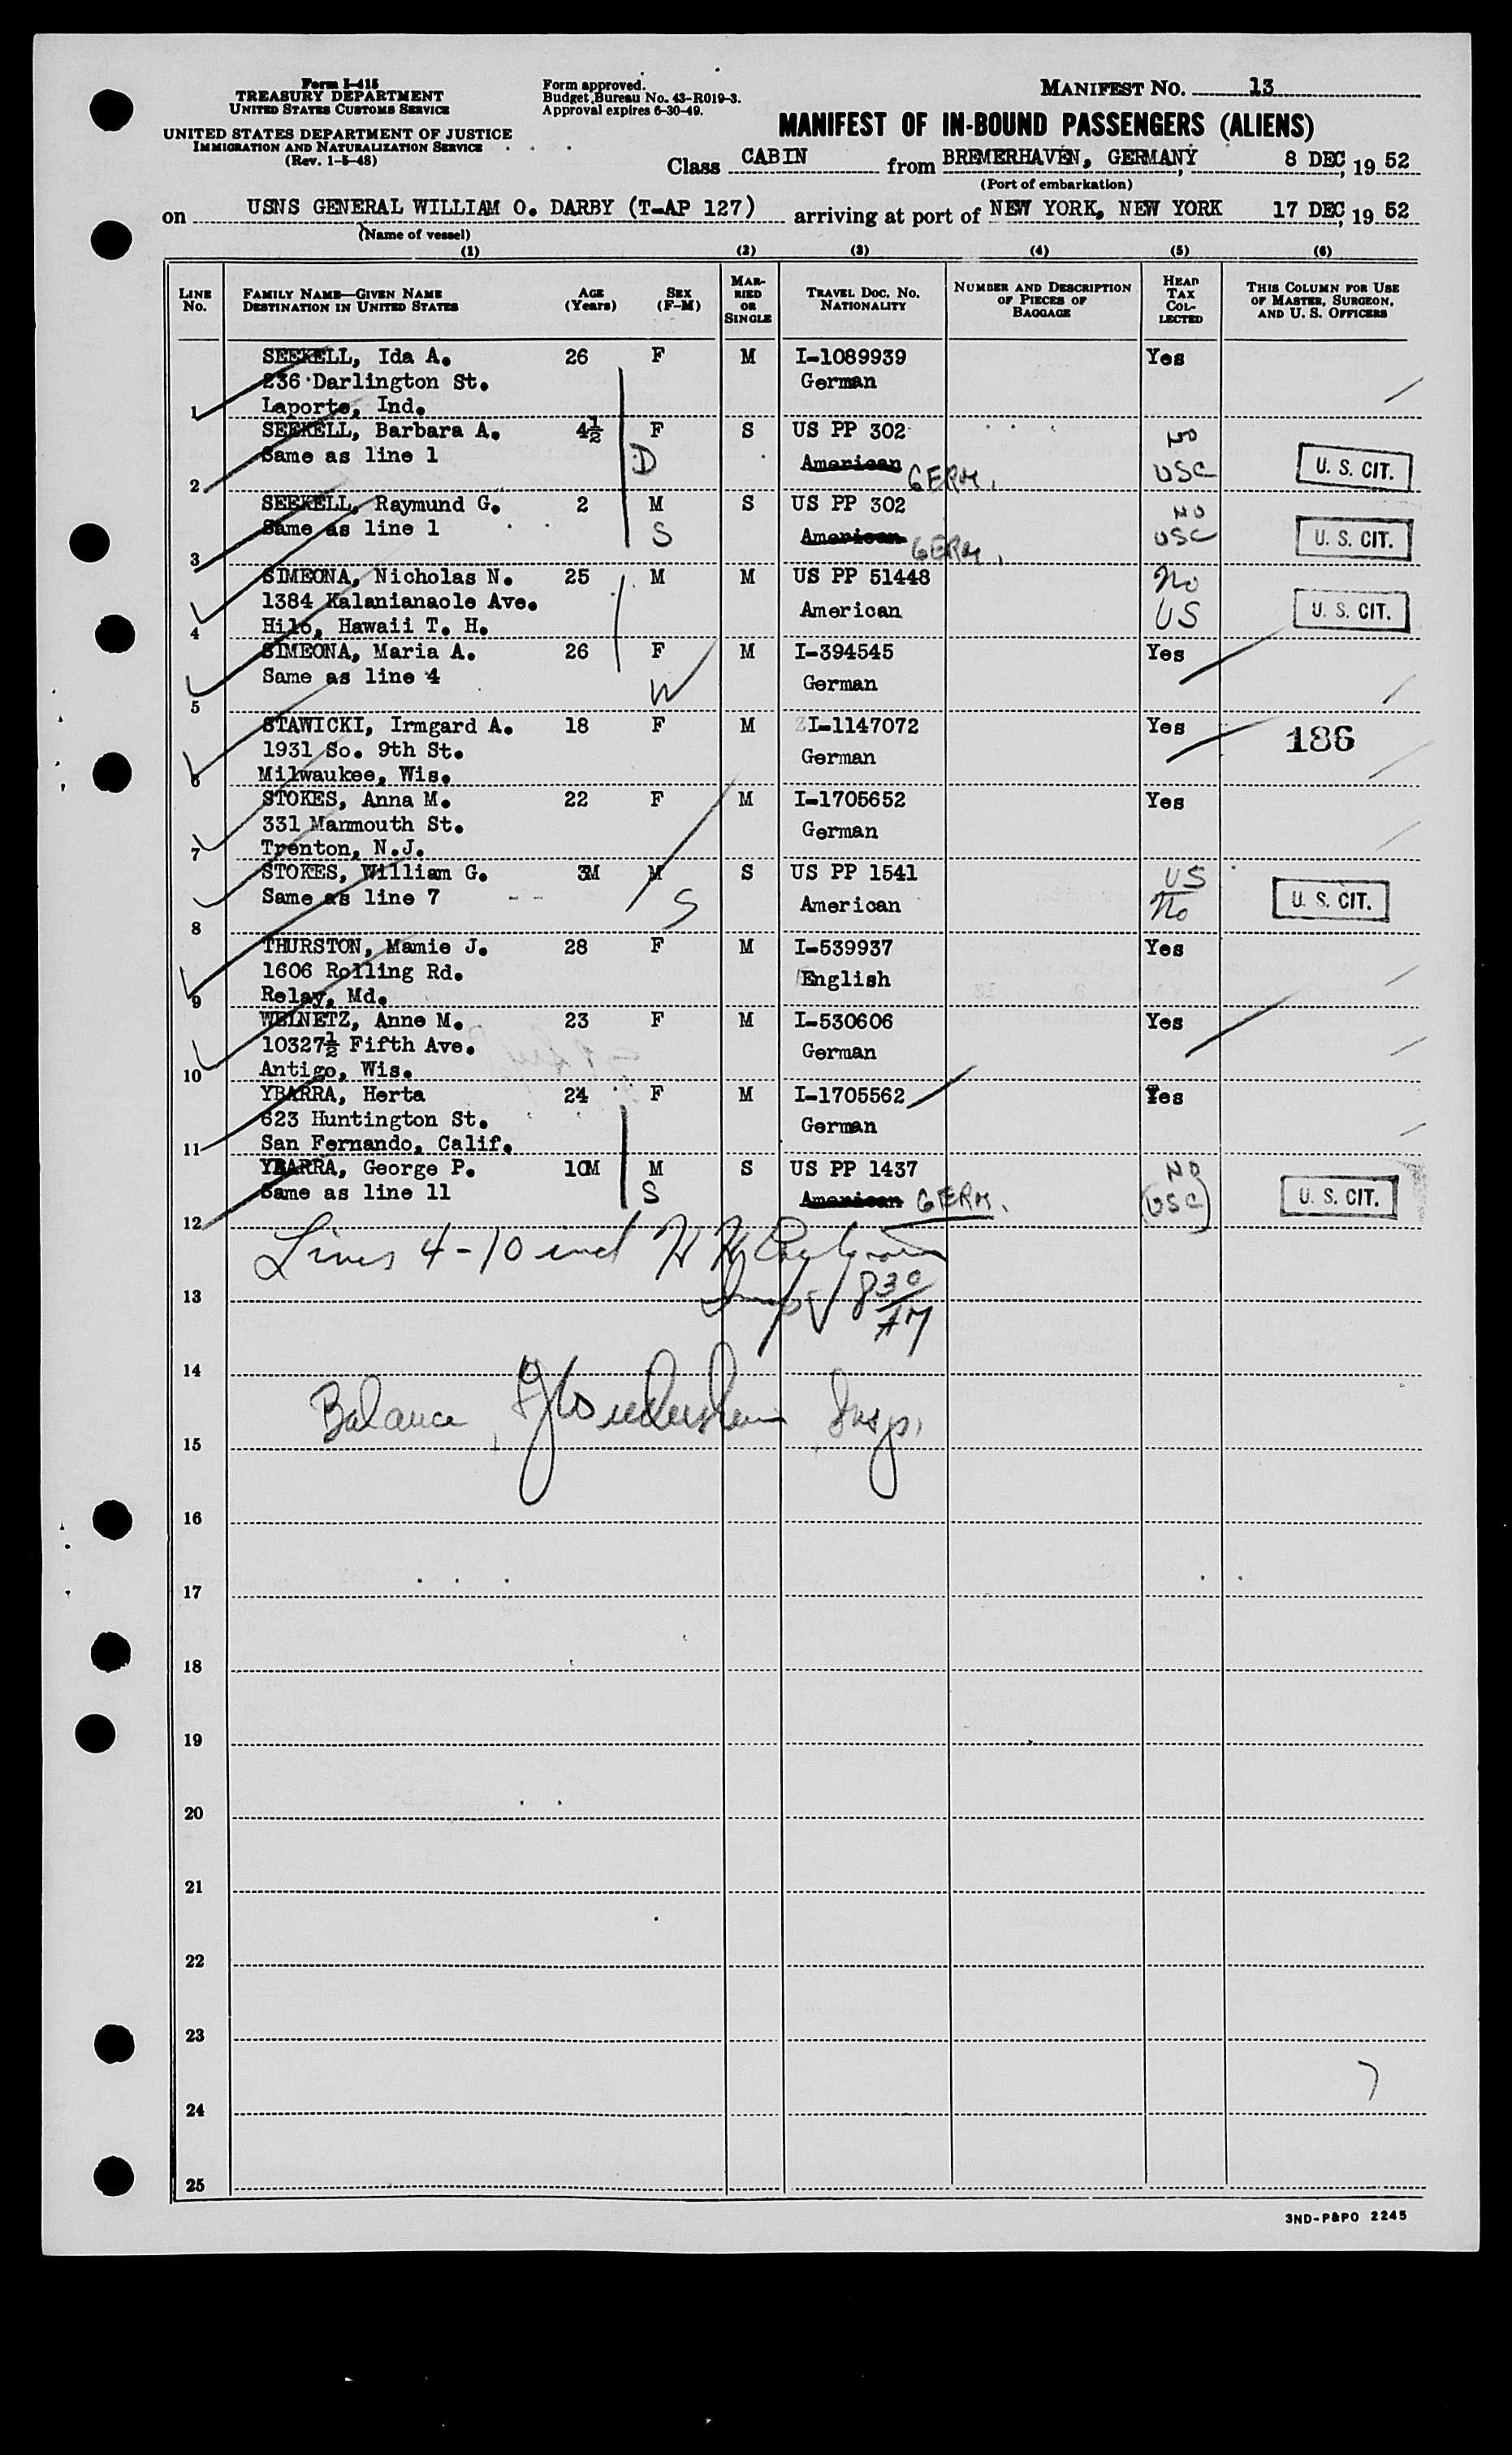 Form I-415
TREASURY DEPARTMENT
UNITED STATES CUSTOMS SERVICE
UNITED STATES DEPARTMENT OF JUSTICE
IMMIGRATION AND NATURALIZATION SERVICE
(Rev. 1-5-48)
Form approved.
Budget Bureau No. 43-R019-3.
Approval expires 6-30-49.
MANIFEST NO. 13
MANIFEST OF IN-BOUND PASSENGERS (ALIENS)
Class CABIN from BREMERHAVEN, GERMANY, 8 DEC, 19 52
(Port of embarkation)
on USNS GENERAL WILLIAM O. DARBY (T-AP 127) arriving at port of NEW YORK, NEW YORK 17 DEC, 19 52
(Name of vessel)
(1) (2) (3) (4) (5) (6)
LINE No. FAMILY NAME—GIVEN NAME DESTINATION IN UNITED STATES AGE (Years) SEX (F-M) MARRIED OR SINGLE TRAVEL DOC. NO. NATIONALITY NUMBER AND DESCRIPTION OF PIECES OF BAGGAGE HEAD TAX COLLECTED THIS COLUMN FOR USE OF MASTER, SURGEON, AND U. S. OFFICERS
SEEKELL, Ida A. 26 F M I-1089939 Yes
236 Darlington St. German
1 Laporte, Ind.
SEEKELL, Barbara A. 4½ F S US PP 302 NO
Same as line 1 D American GERM. USC U. S. CIT.
2
SEEKELL, Raymund G. 2 M S US PP 302 NO
Same as line 1 S American GERM. USC U. S. CIT.
3
SIMEONA, Nicholas N. 25 M M US PP 51448 No
1384 Kalanianaole Ave. American US U. S. CIT.
4 Hilo, Hawaii T. H.
SIMEONA, Maria A. 26 F M I-394545 Yes
Same as line 4 W German
5
STAWICKI, Irmgard A. 18 F M I-1147072 Yes 186
1931 So. 9th St. German
6 Milwaukee, Wis.
STOKES, Anna M. 22 F M I-1705652 Yes
331 Marmouth St. German
7 Trenton, N.J.
STOKES, William G. 3M M S US PP 1541 US
Same as line 7 S American No U. S. CIT.
8
THURSTON, Mamie J. 28 F M I-539937 Yes
1606 Rolling Rd. English
9 Relay, Md.
WEINETZ, Anne M. 23 F M I-530606 Yes
10327½ Fifth Ave. German
10 Antigo, Wis.
YBARRA, Herta 24 F M I-1705562 Yes
623 Huntington St. German
11 San Fernando, Calif.
YBARRA, George P. 10M M S US PP 1437 NO
Same as line 11 S American GERM. (USC) U. S. CIT.
12
Lines 4-10 incl
13 Insp 830
AM
14
Balance Insp.
15
16
17
18
19
20
21
22
23
24
25
3ND-P&PO 2245